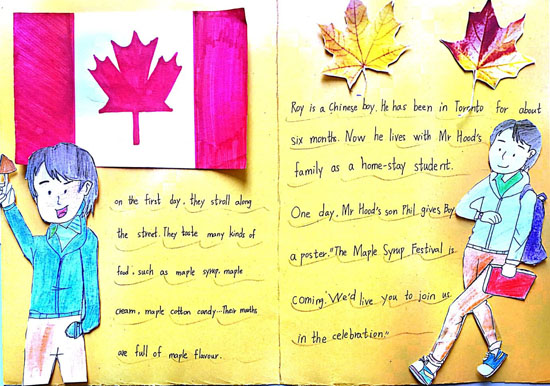 on the first day, they stroll along
the street. They taste many kinds of
food, such as maple syrup, maple
cream, maple cotton candy...Their mouths
are full of maple flavour.
Roy is a Chinese boy. He has been in Toronto for about
six months. Now he lives with Mr Hood's
family as a home-stay student.
One day, Mr Hood's son Phil gives Boy
a poster."The Maple Syrup Festival is
coming. We'd live you to join us
in the celebration."